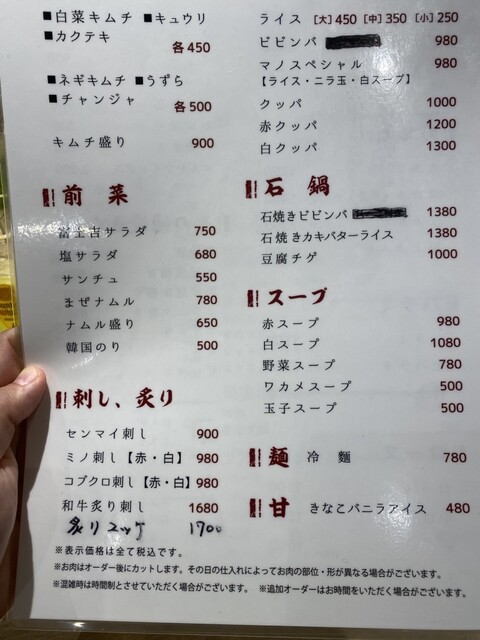 ■白菜キムチ ■キュウリ
■カクテキ 各450
■ネギキムチ ■うずら
■チャンジャ 各500
キムチ盛り 900
前菜
富士吉サラダ 750
塩サラダ 680
サンチュ 550
まぜナムル 780
ナムル盛り 650
韓国のり 500
刺し、炙り
センマイ刺し 900
ミノ刺し【赤・白】 980
コブクロ刺し【赤・白】 980
和牛炙り刺し 1680
炙りユッケ 1700
ライス [大]450 [中]350 [小]250
ビビンバ 980
マノスペシャル 980
【ライス・ニラ玉・白スープ】
クッパ 1000
赤クッパ 1200
白クッパ 1300
石鍋
石焼きビビンバ 1380
石焼きカキバターライス 1380
豆腐チゲ 1000
スープ
赤スープ 980
白スープ 1080
野菜スープ 780
ワカメスープ 500
玉子スープ 500
麺 冷麺 780
甘 きなこバニラアイス 480
※表示価格は全て税込です。
※お肉はオーダー後にカットします。その日の仕入れによってお肉の部位・形が異なる場合がございます。
※混雑時は時間制とさせていただく場合がございます。 ※追加オーダーはお時間をいただく場合がございます。